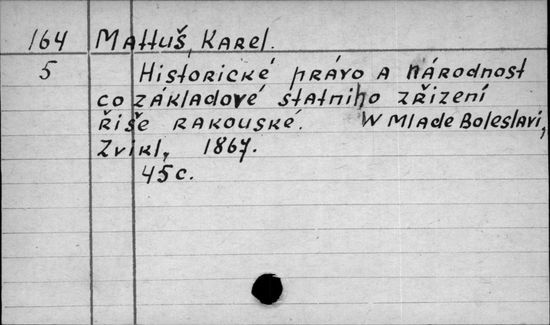 164 Mattuš, Karel.
5 Historické právo a národnost
co základové statniho zřizení
říše rakouské. W Mlade Boleslavi,
Zvikl, 1867.
45c.